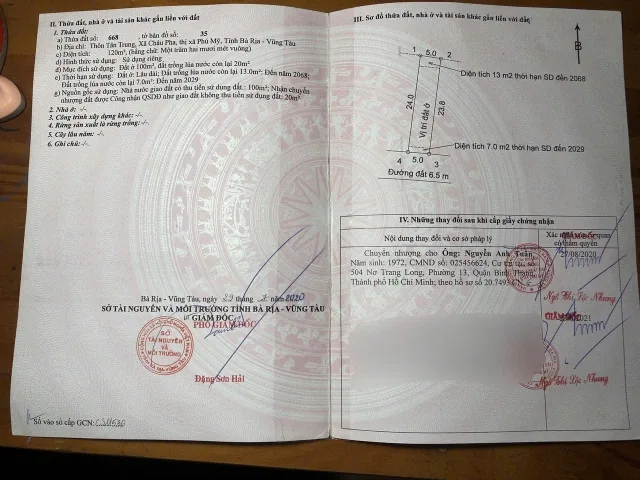 II. Thửa đất, nhà ở và tài sản khác gắn liền với đất
1. Thửa đất:
a) Thửa đất số: 668, tờ bản đồ số: 35
b) Địa chỉ: Thôn Tân Trung, Xã Châu Pha, thị xã Phú Mỹ, Tỉnh Bà Rịa - Vũng Tàu
c) Diện tích: 120m², (bằng chữ: Một trăm hai mươi mét vuông)
d) Hình thức sử dụng: Sử dụng riêng
đ) Mục đích sử dụng: Đất ở 100m², đất trồng lúa nước còn lại 20m²
e) Thời hạn sử dụng: Đất ở: Lâu dài; Đất trồng lúa nước còn lại 13.0m²: Đến năm 2068;
Đất trồng lúa nước còn lại 7.0m²: Đến năm 2029
g) Nguồn gốc sử dụng: Nhà nước giao đất có thu tiền sử dụng đất: 100m²; Nhận chuyển
nhượng đất được Công nhận QSDĐ như giao đất không thu tiền sử dụng đất: 20m².
2. Nhà ở: -/-
3. Công trình xây dựng khác: -/-
4. Rừng sản xuất là rừng trồng: -/-
5. Cây lâu năm: -/-
6. Ghi chú: -/-
Bà Rịa - Vũng Tàu, ngày 29 tháng 2 năm 2020
SỞ TÀI NGUYÊN VÀ MÔI TRƯỜNG TỈNH BÀ RỊA - VŨNG TÀU
GIÁM ĐỐC
PHÓ GIÁM ĐỐC
SỞ
TÀI NGUYÊN
VÀ
MÔI TRƯỜNG
Đặng Sơn Hải
Số vào sổ cấp GCN:
III. Sơ đồ thửa đất, nhà ở và tài sản khác gắn liền với đất
B
1 5.0 2
Diện tích 13 m2 thời hạn SD đến 2068
24.0
23.8
Vị trí đất ở
Diện tích 7.0 m2 thời hạn SD đến 2029
4 5.0 3
Đường đất 6.5 m
IV. Những thay đổi sau khi cấp giấy chứng nhận
Nội dung thay đổi và cơ sở pháp lý
Xác nhận của cơ quan
có thẩm quyền
GIÁM ĐỐC
Chuyển nhượng cho Ông: Nguyễn Anh Tuấn,
27/08/2020
Năm sinh: 1972, CMND số: 025456624, Cư trú tại số
504 Nơ Trang Long, Phường 13, Quận Bình Thạnh,
Thành phố Hồ Chí Minh; theo hồ sơ số 20.749
Ngô Thị Lộc Nhung
GIÁM ĐỐC
2021
Ngô Thị Lộc Nhung